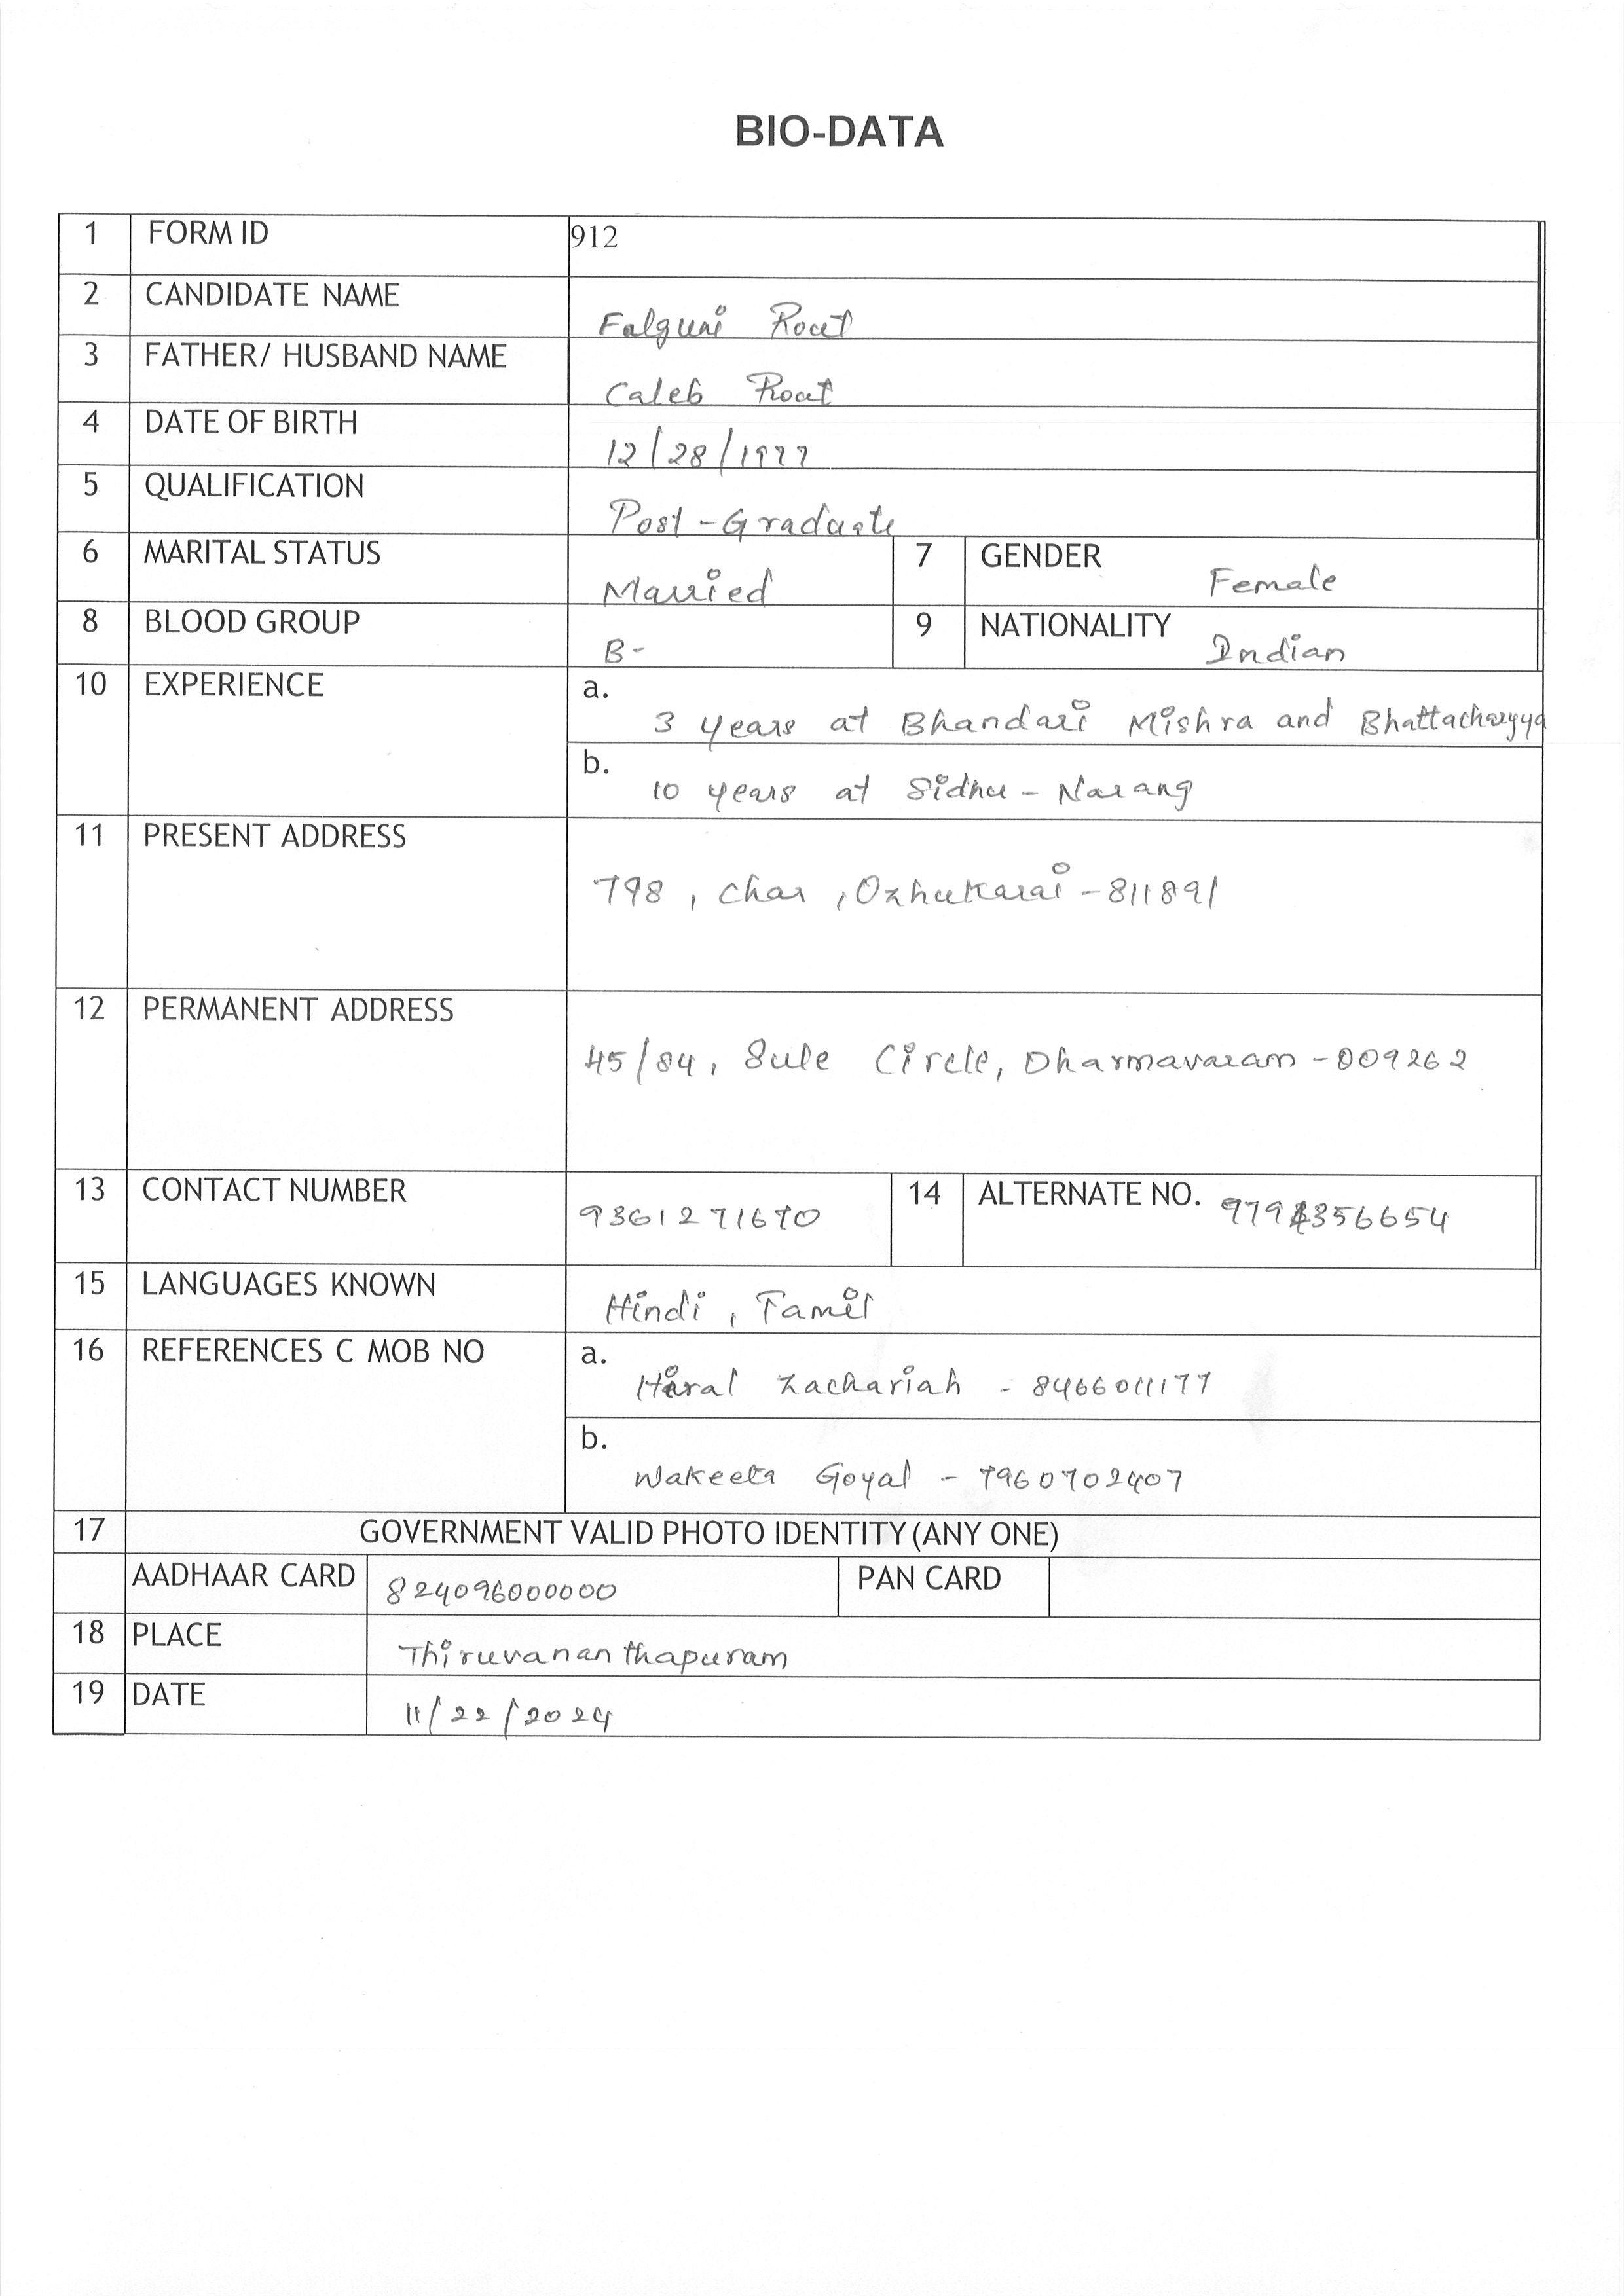 BIO-DATA
1 FORM ID 912
2 CANDIDATE NAME Falguni Rout
3 FATHER/ HUSBAND NAME Caleb Rout
4 DATE OF BIRTH 12/28/1977
5 QUALIFICATION Post-Graduate
6 MARITAL STATUS Married 7 GENDER Female
8 BLOOD GROUP B- 9 NATIONALITY Indian
10 EXPERIENCE a. 3 years at Bhandari Mishra and Bhattacharyya
b. 10 years at Sidhu-Narang
11 PRESENT ADDRESS 798, Char, Ozhukarai-811891
12 PERMANENT ADDRESS 45/84, Sule Circle, Dharmavaram-009262
13 CONTACT NUMBER 9361271670 14 ALTERNATE NO.
15 LANGUAGES KNOWN Hindi, Tamil
16 REFERENCES C MOB NO a. Hiral Zachariah - 8466011177
b. Wakeeta Goyal - 7960702407
17 GOVERNMENT VALID PHOTO IDENTITY (ANY ONE)
AADHAAR CARD 824096000000 PAN CARD
18 PLACE Thiruvananthapuram
19 DATE 11/22/2024